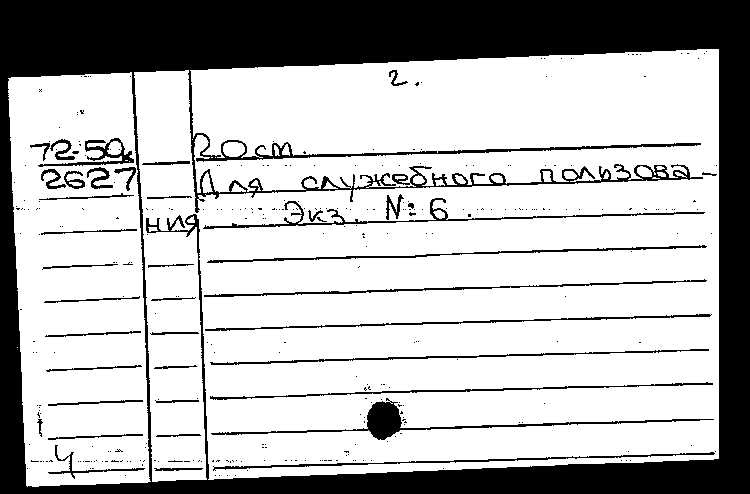 2.
72-50к 20 cm.
2627 Для служебного пользова-
ния Экз. №6.
Ч